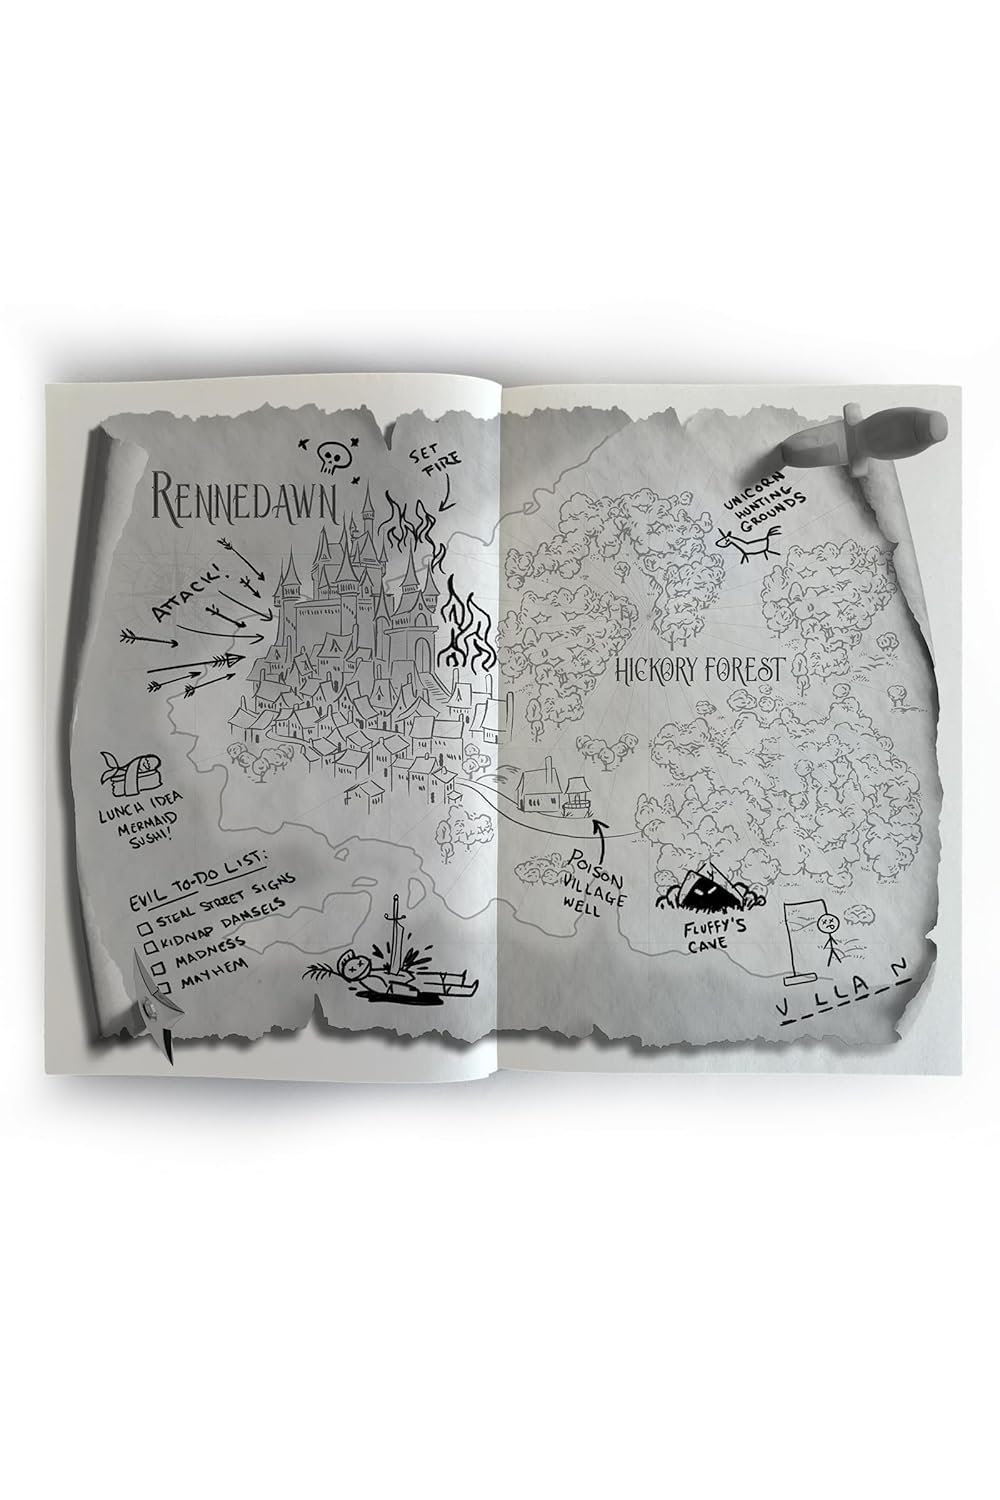 RENNEDAWN
SET
FIRE
ATTACK!
LUNCH IDEA
MERMAID
SUSHI!
EVIL TO-DO LIST:
STEAL STREET SIGNS
KIDNAP DAMSELS
MADNESS
MAYHEM
UNICORN
HUNTING
GROUNDS
HICKORY FOREST
POISON
VILLAGE
WELL
FLUFFY'S
CAVE
V LLA N